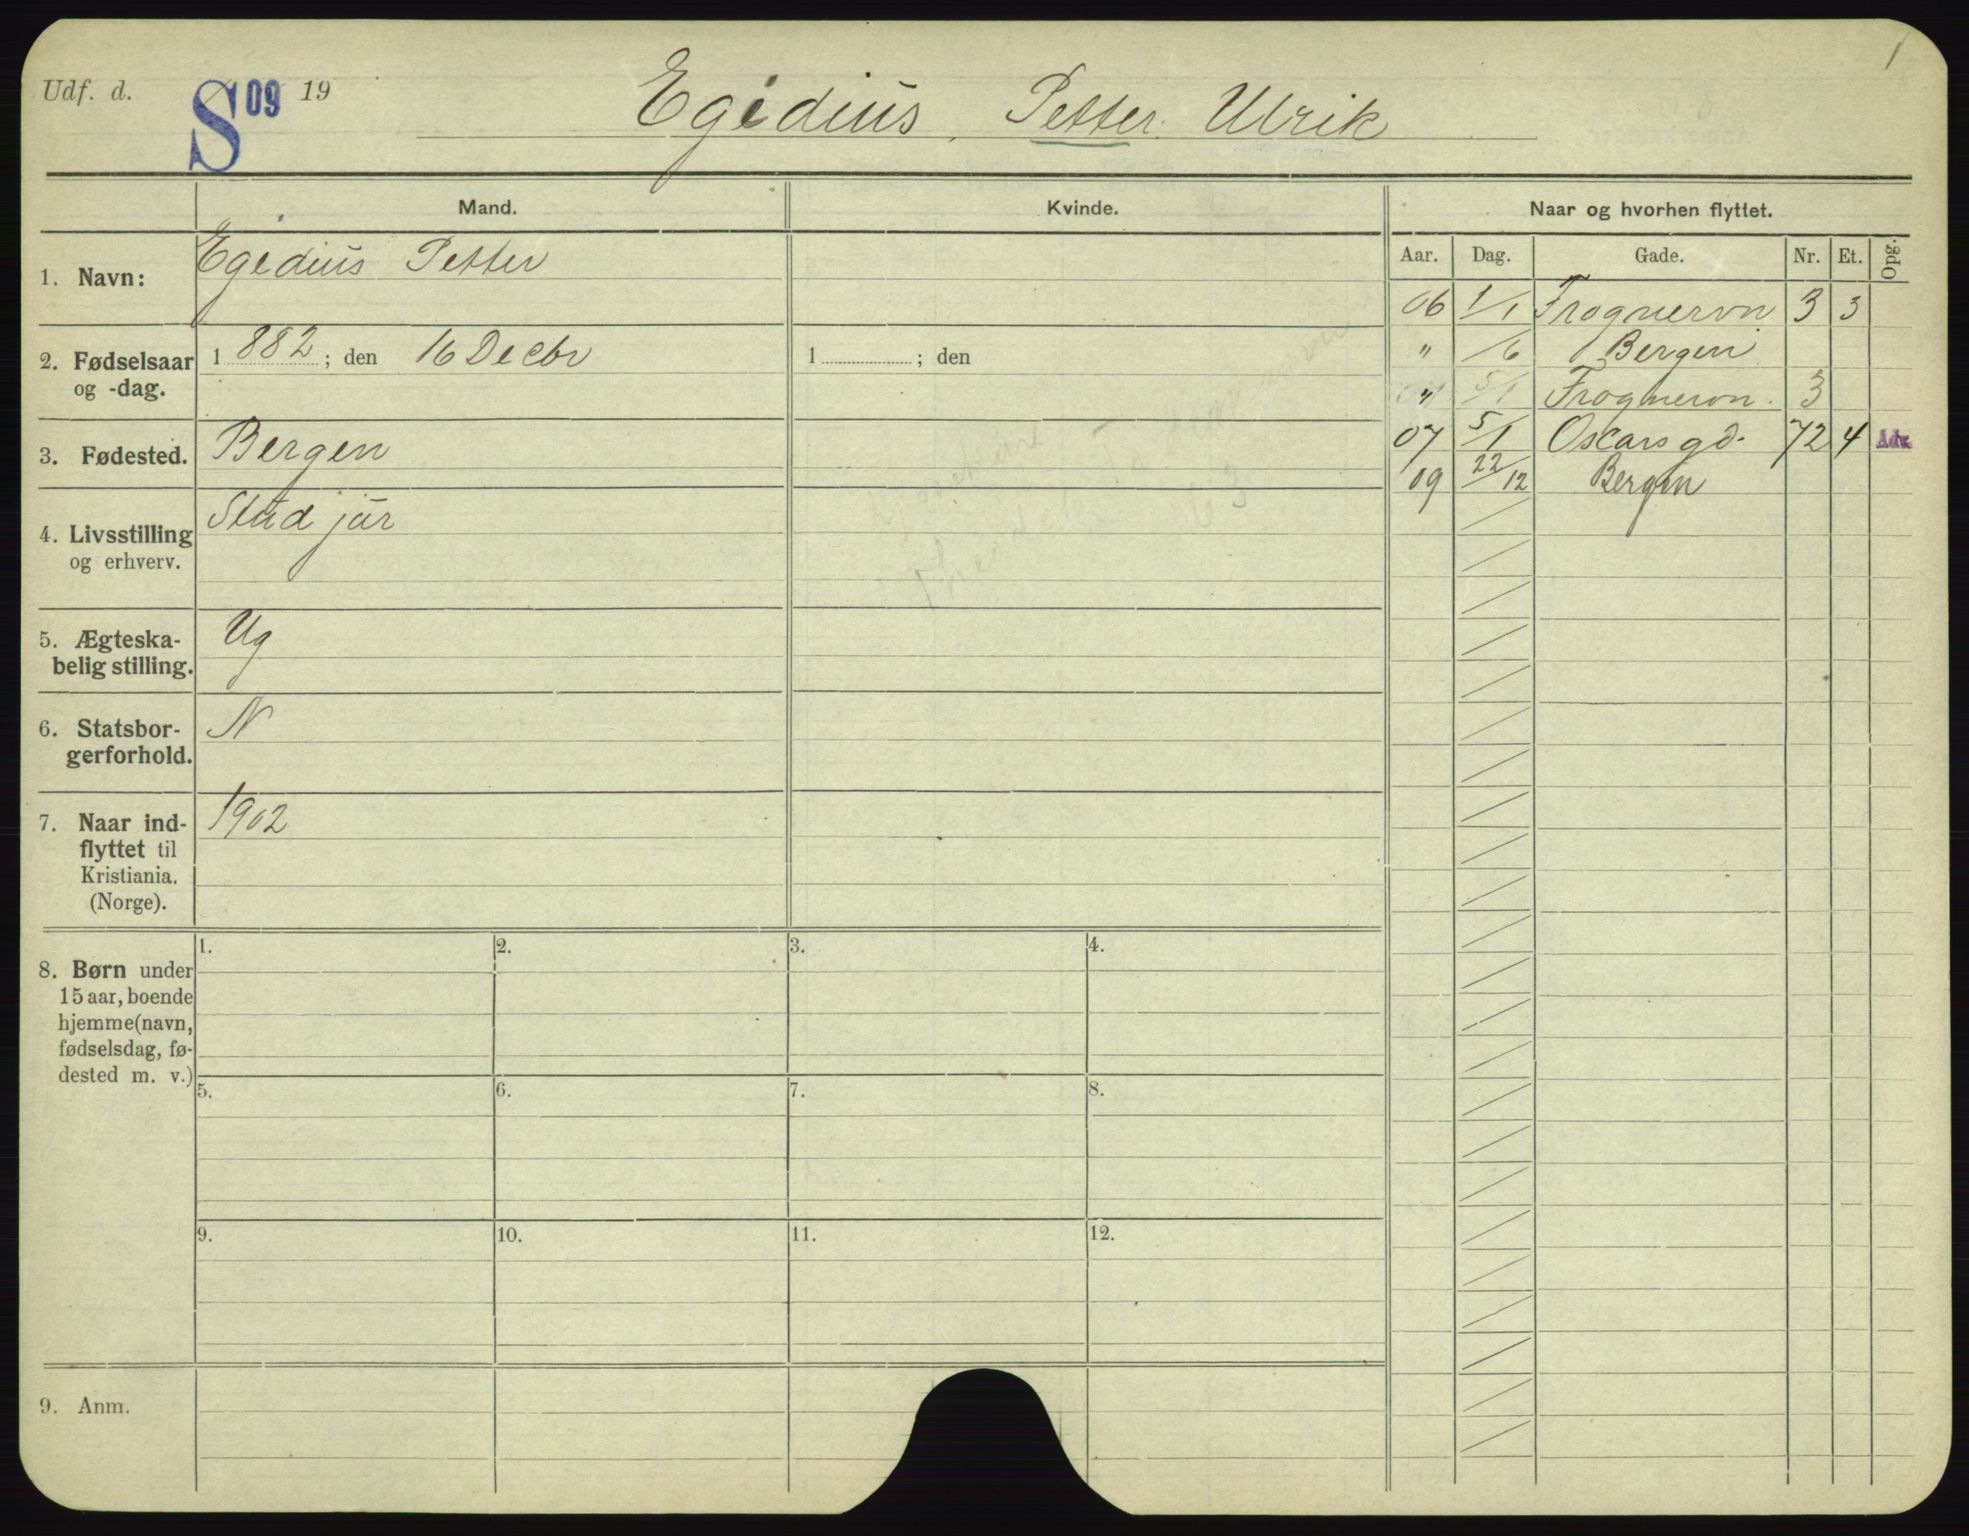 Udf. d. S 09 19
Egidius, Petter Ulrik
1
Mand.
Kvinde.
Naar og hvorhen flyttet.
1. Navn:
Egidius Petter
2. Fødselsaar
og -dag.
1 882 ; den 16 Decbr
1 ; den
3. Fødested.
Bergen
4. Livsstilling
og erhverv.
Stud jur
5. Ægteska-
belig stilling.
Ug
6. Statsbor-
gerforhold.
N
7. Naar ind-
flyttet til
Kristiania.
(Norge).
1902
8. Børn under
15 aar, boende
hjemme (navn,
fødselsdag, fø-
dested m. v.)
1. 2. 3. 4.
5. 6. 7. 8.
9. 10. 11. 12.
9. Anm.
Aar. Dag. Gade. Nr. Et. Opg.
06 1/1 Frognervn 3 3
" /6 Bergen
" 5/1 Frognervn. 3
07 5/1 Oscars gd. 72 4 Adr.
09 22/12 Bergen